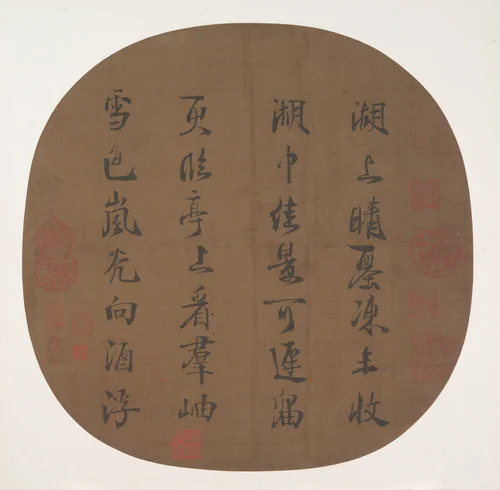 湖上晴꞉凍未收
湖中佳景可遲留
更臨亭上看羣岫
雪色嵐光向酒浮